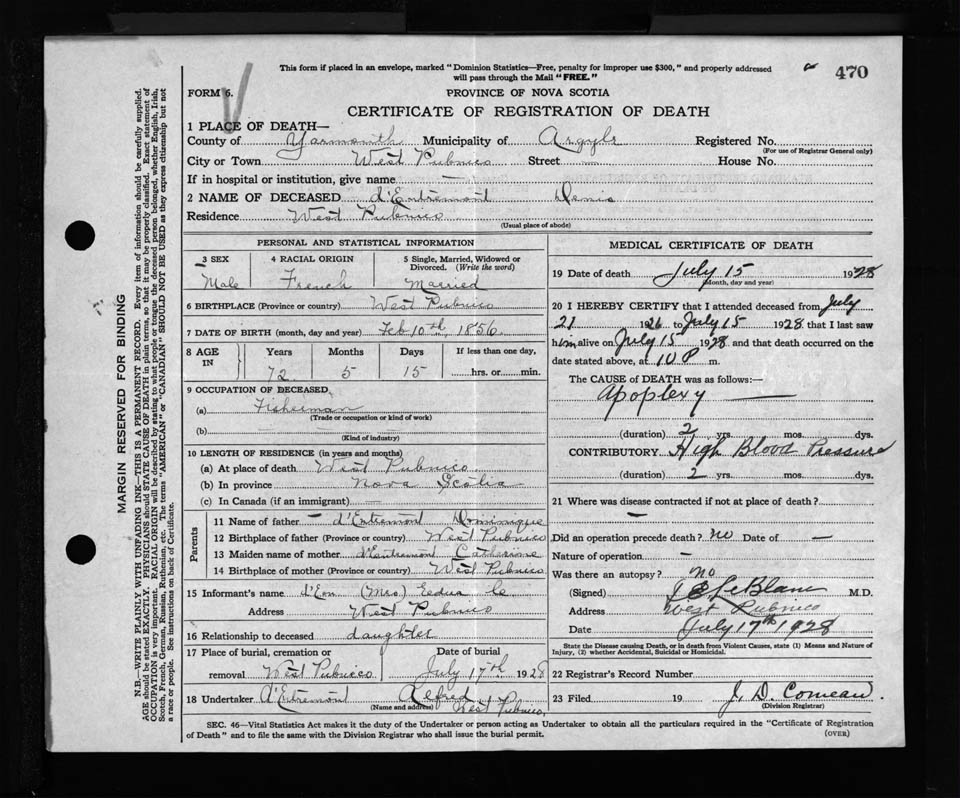 This form if placed in an envelope, marked "Dominion Statistics—Free, penalty for improper use $300," and properly addressed
will pass through the Mail "FREE."
470
FORM 6.
PROVINCE OF NOVA SCOTIA
CERTIFICATE OF REGISTRATION OF DEATH
1 PLACE OF DEATH—
County of Yarmouth Municipality of Argyle Registered No.
(For use of Registrar General only)
City or Town West Pubnico Street — House No.
If in hospital or institution, give name —
2 NAME OF DECEASED d'Entremont Denis
Residence West Pubnico
(Usual place of abode)
PERSONAL AND STATISTICAL INFORMATION
3 SEX 4 RACIAL ORIGIN 5 Single, Married, Widowed or
Divorced. (Write the word)
Male French Married
6 BIRTHPLACE (Province or country) West Pubnico
7 DATE OF BIRTH (month, day and year) Feb 10th, 1856
8 AGE IN Years Months Days If less than one day,
72 5 15 hrs. or min.
9 OCCUPATION OF DECEASED
(a) Fisherman
(Trade or occupation or kind of work)
(b)
(Kind of industry)
10 LENGTH OF RESIDENCE (in years and months)
(a) At place of death West Pubnico
(b) In province Nova Scotia
(c) In Canada (if an immigrant) —
Parents
11 Name of father — d'Entremont Dominique
12 Birthplace of father (Province or country) West Pubnico
13 Maiden name of mother d'Entremont Catherine
14 Birthplace of mother (Province or country) West Pubnico
15 Informant's name d'Eon (Mrs) Edna
Address West Pubnico
16 Relationship to deceased daughter
17 Place of burial, cremation or Date of burial
removal West Pubnico July 17th 1928
18 Undertaker d'Entremont Alfred
(Name and address) West Pubnico
MEDICAL CERTIFICATE OF DEATH
19 Date of death July 15 1928
(Month, day and year)
20 I HEREBY CERTIFY that I attended deceased from July
21 1926 to July 15 1928 that I last saw
him alive on July 15 1928 and that death occurred on the
date stated above, at 10 P m.
The CAUSE of DEATH was as follows:—
Apoplexy —
(duration) 2 yrs. mos. dys.
CONTRIBUTORY High Blood Pressure
(duration) 2 yrs. mos. dys.
21 Where was disease contracted if not at place of death?
—
Did an operation precede death? no Date of —
Nature of operation —
Was there an autopsy? no
(Signed) LeBlanc M.D.
Address West Pubnico
Date July 17th 1928
State the Disease causing Death, or in death from Violent Causes, state (1) Means and Nature of
Injury, (2) whether Accidental, Suicidal or Homicidal.
22 Registrar's Record Number
23 Filed 19 J. D. Comeau
(Division Registrar)
SEC. 46—Vital Statistics Act makes it the duty of the Undertaker or person acting as Undertaker to obtain all the particulars required in the "Certificate of Registration
of Death" and to file the same with the Division Registrar who shall issue the burial permit.
(OVER)
MARGIN RESERVED FOR BINDING
N.B.—WRITE PLAINLY WITH UNFADING INK—THIS IS A PERMANENT RECORD. Every item of information should be carefully supplied.
AGE should be stated EXACTLY. PHYSICIANS should STATE CAUSE OF DEATH in plain terms, so that it may be properly classified. Exact statement of
OCCUPATION is very important. RACIAL ORIGIN will be described by stating to what people or tongue the deceased person belonged, whether English, Irish,
Scotch, French, German, Russian, Ruthenian, etc. The terms "AMERICAN" or "CANADIAN" SHOULD NOT BE USED as they express citizenship but not
a race or people. See instructions on back of Certificate.